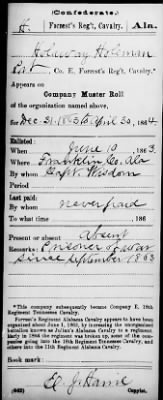 (Confederate.)
H. Forrest's Reg't, Cavalry. Ala.
Holeman
Pvt, Co. E, Forrest's Reg't, Cavalry.*
Appears on
Company Muster Roll
of the organization named above,
for Dec. 31. 1863 to April 30, 1864
Enlisted:
When June 10 1863.
Where Franklin Co. Ala
By whom Capt. Wisdom
Period
Last paid:
By whom never paid
To what time , 186
Present or absent Absent
Remarks: Prisoner of war
since September 1863
*This company subsequently became Company E, 18th
Regiment Tennessee Cavalry.
Forrest's Regiment Alabama Cavalry appears to have been
organized about June 1, 1863, by increasing the
organization known as Julian's Alabama Cavalry to a regiment.
Early in 1864 the regiment was broken up, some of the com-
panies going into the 18th Regiment Tennessee Cavalry, and
others into the 11th Regiment Alabama Cavalry.
Book mark:
(642) Copyist.